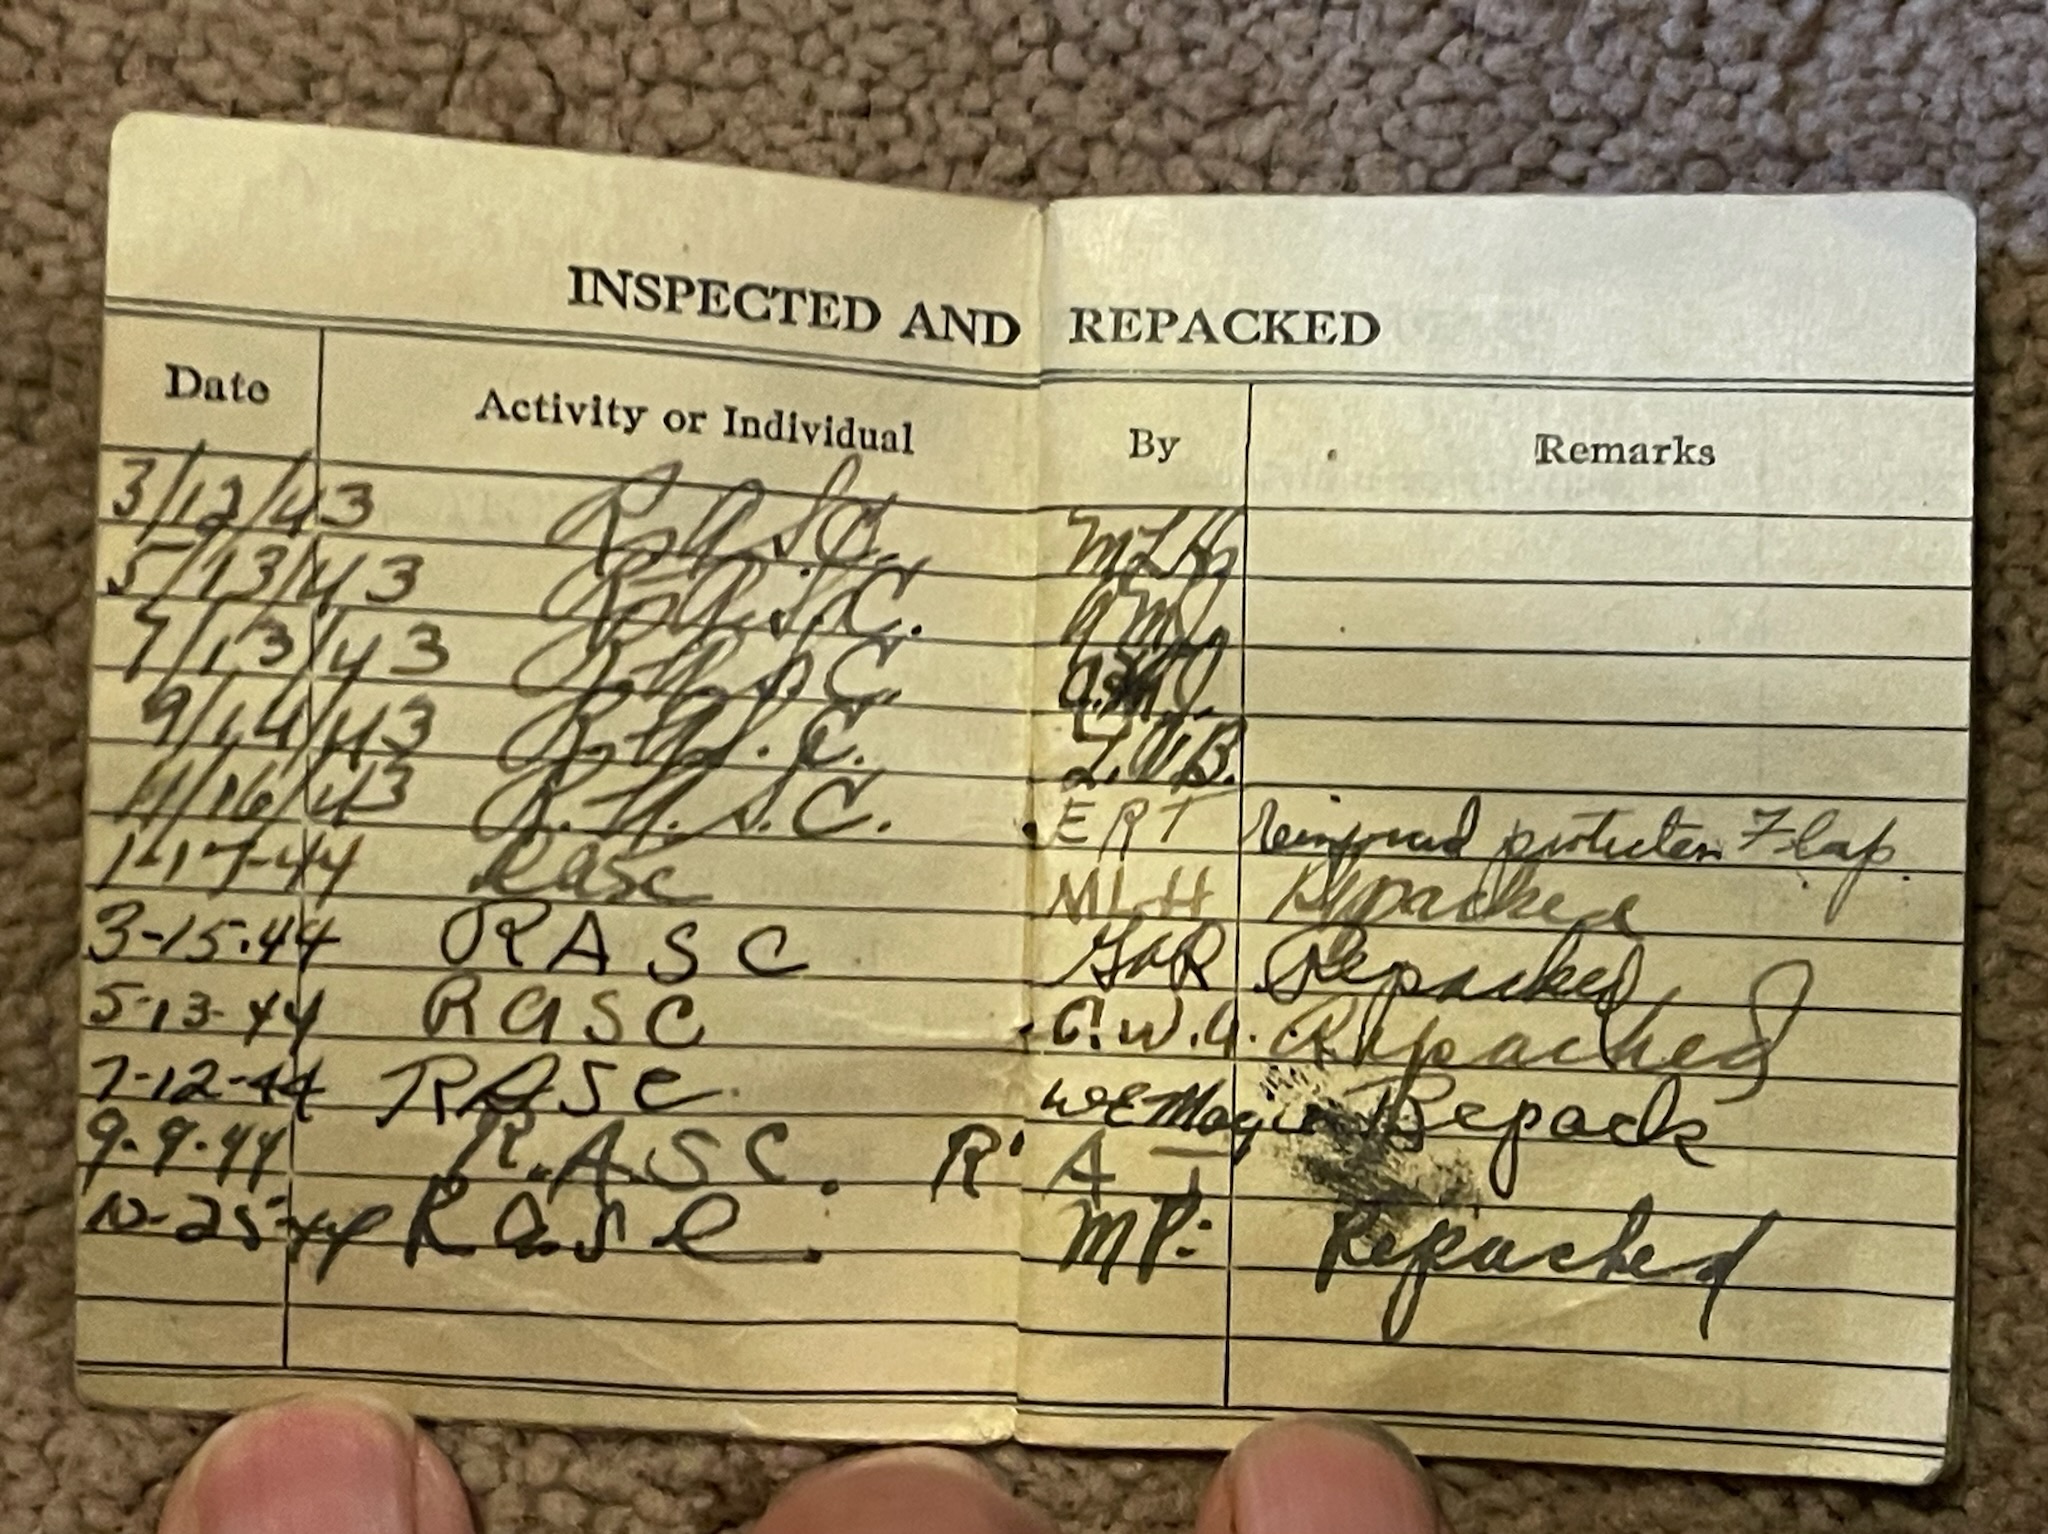 INSPECTED AND REPACKED
Date Activity or Individual By Remarks
3/12/43 R.A.S.C. MLH
5/13/43 R.A.S.C.
7/13/43 R.A.S.C.
9/14/43 R.A.S.C.
11/16/43 R.A.S.C. ERT reinforced protector Flap.
1-17-44 RASC MLH Repacked
3-15-44 RASC Repacked
5-13-44 RASC C.W.A. Repacked
7-12-44 RASC Repack
9-9-44 R.A.S.C. R
10-25-44 RASC. MP. Repacked